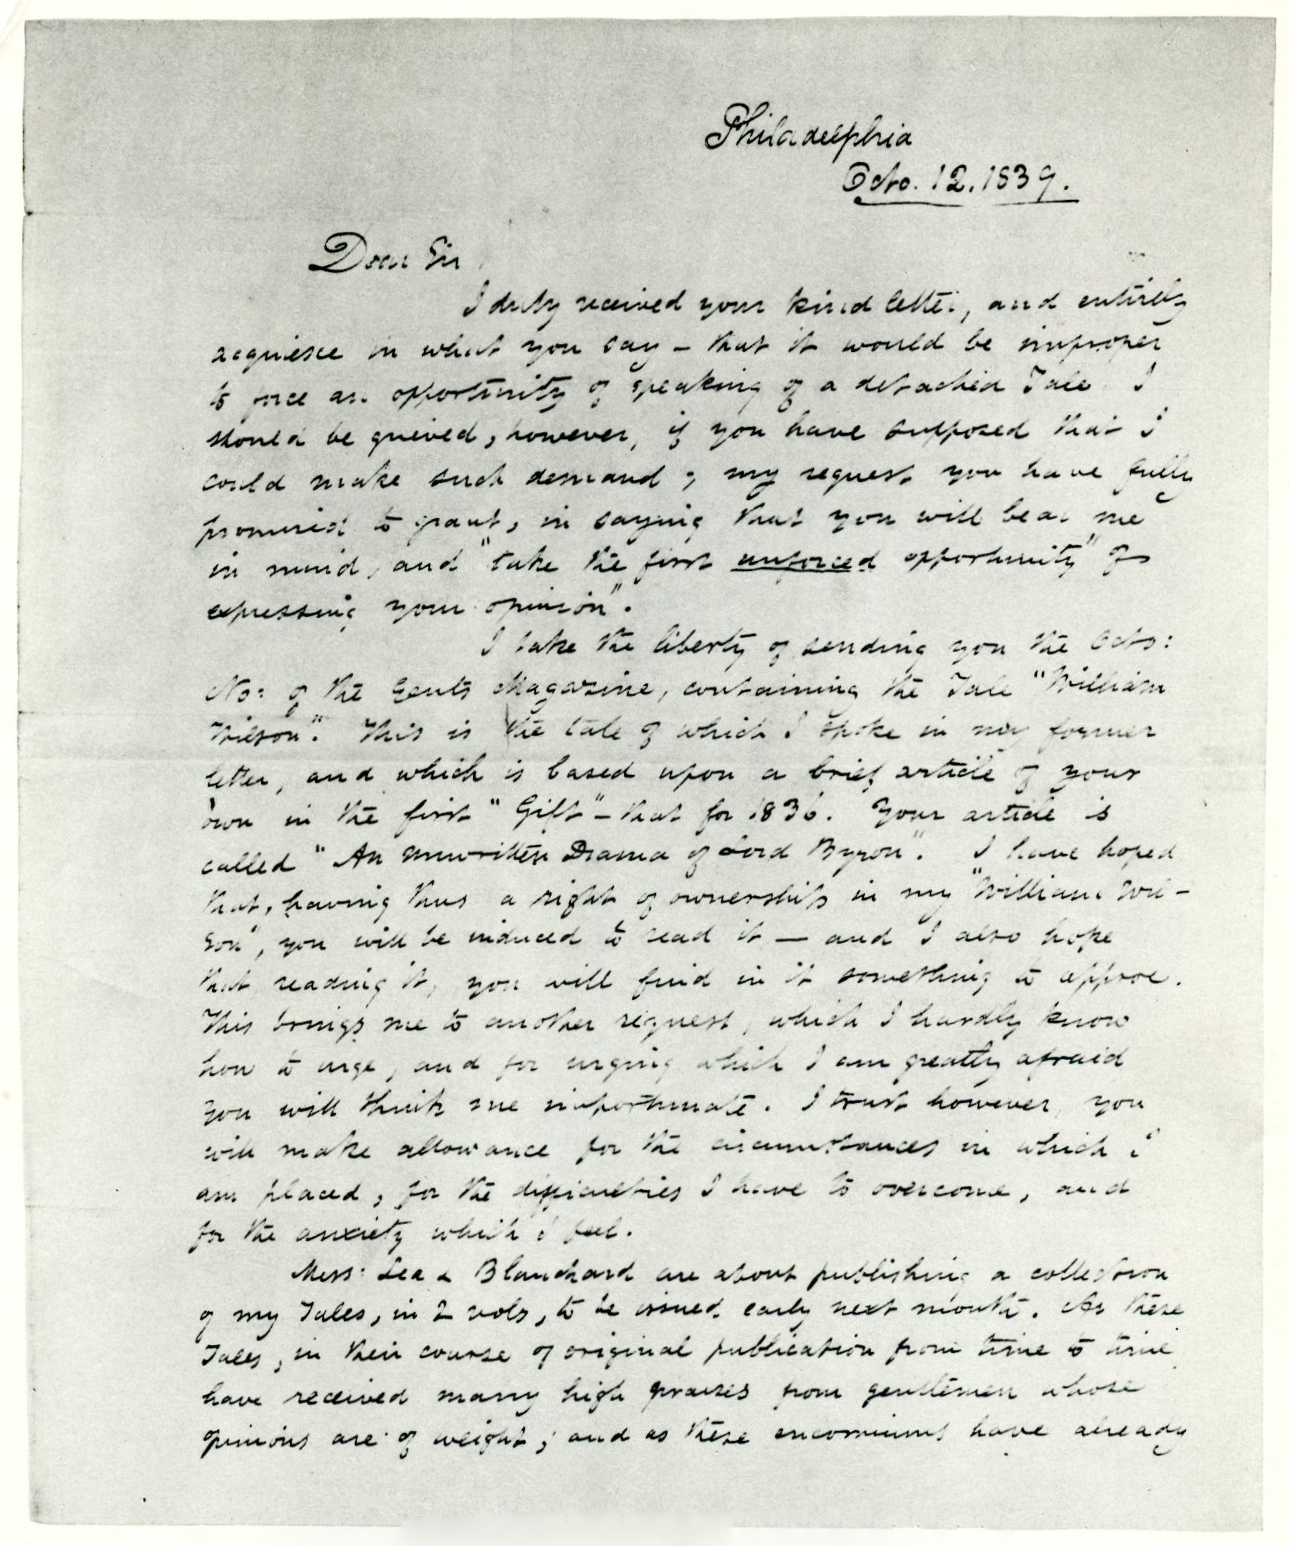 Philadelphia
Octo. 12. 1839.
Dear Sir
I duly received your kind letter, and entirely
acquiesce in what you say — that it would be improper
to force an opportunity of speaking of a detached Tale. I
should be grieved, however, if you have supposed that I
could make such demand; my request you have fully
promised to grant, in saying that you will bear me
in mind, and "take the first unforced opportunity" of
expressing your opinion".
I take the liberty of sending you the Octo:
No: of the Gents Magazine, containing the Tale "William
Wilson". This is the tale of which I spoke in my former
letter, and which is based upon a brief article of your
own in the first "Gift" — that for 1836. Your article is
called "An Unwritten Drama of Lord Byron". I have hoped
that, having thus a right of ownership in my "William Wil-
son", you will be induced to read it — and I also hope
that reading it, you will find in it something to approve.
This brings me to another request, which I hardly know
how to urge, and for urging which I am greatly afraid
you will think me importunate. I trust however, you
will make allowance for the circumstances in which I
am placed, for the difficulties I have to overcome, and
for the anxiety which I feel.
Mess: Lea & Blanchard are about publishing a collection
of my Tales, in 2 vols, to be issued early next month. As these
Tales, in their course of original publication from time to time,
have received many high praises from gentlemen whose
opinions are of weight; and as these encomiums have already